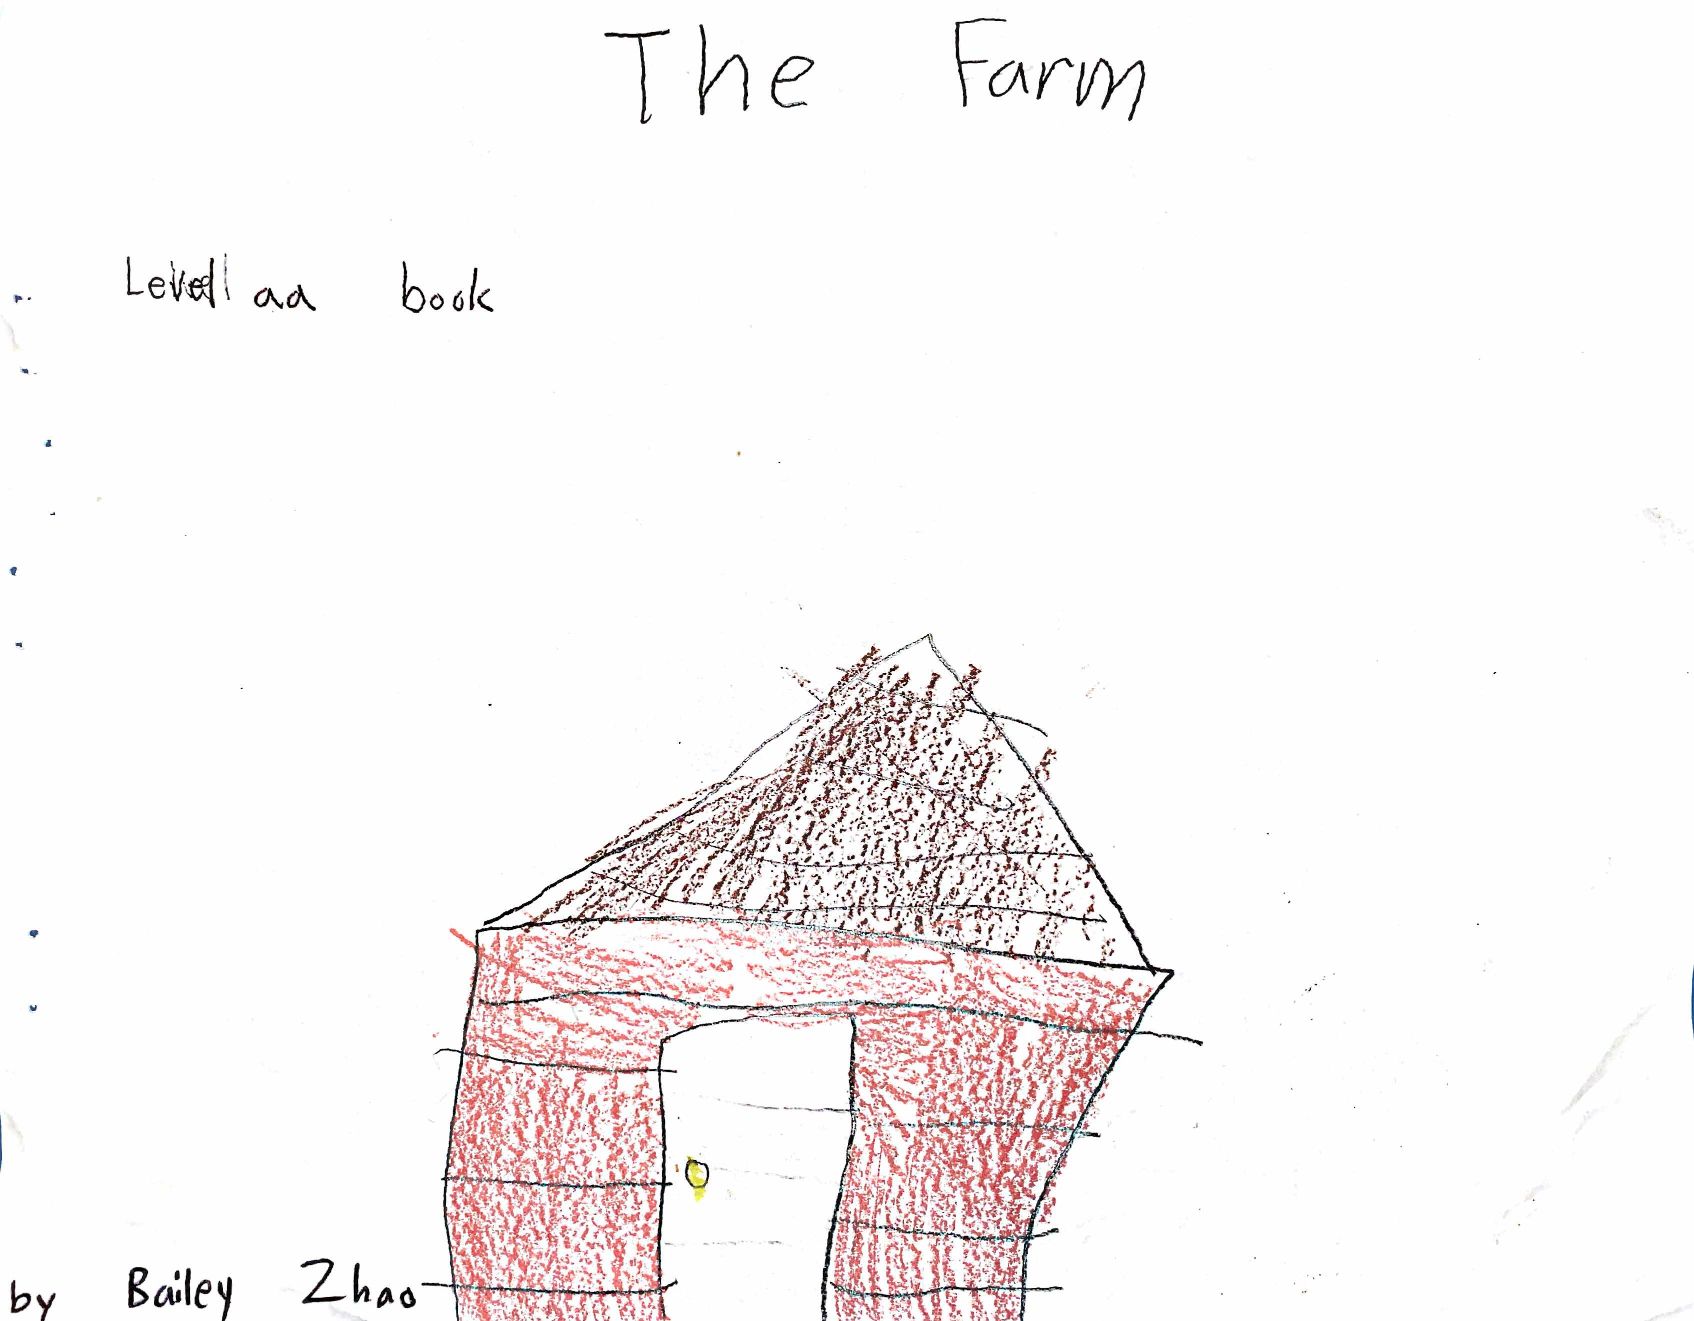 The Farm
Level aa book
by Bailey Zhao